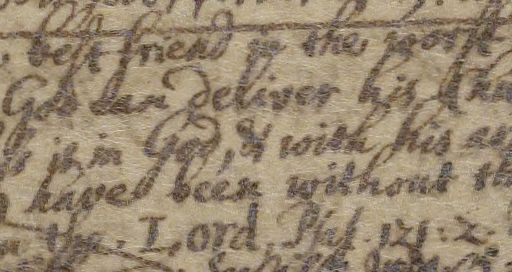 best friend in the worl
God can deliver his
is in God, & with his
have been without th
the Lord. Psl. 121. 2.